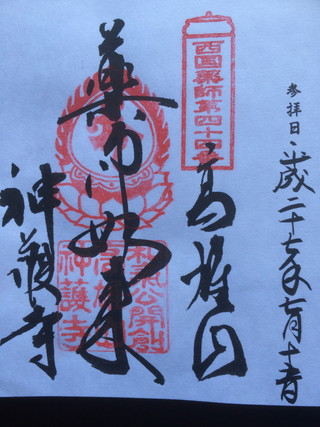 参拝日・平成二十七年七月十一日
西国薬師第四十四番
高雄山
薬師如来
和気公開創
高雄山
神護寺
神護寺